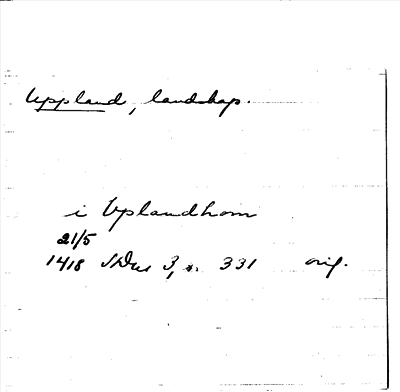 Uppland, landskap.
i Uplandhom
21/5
1418 SDns 3, s. 331 orig.